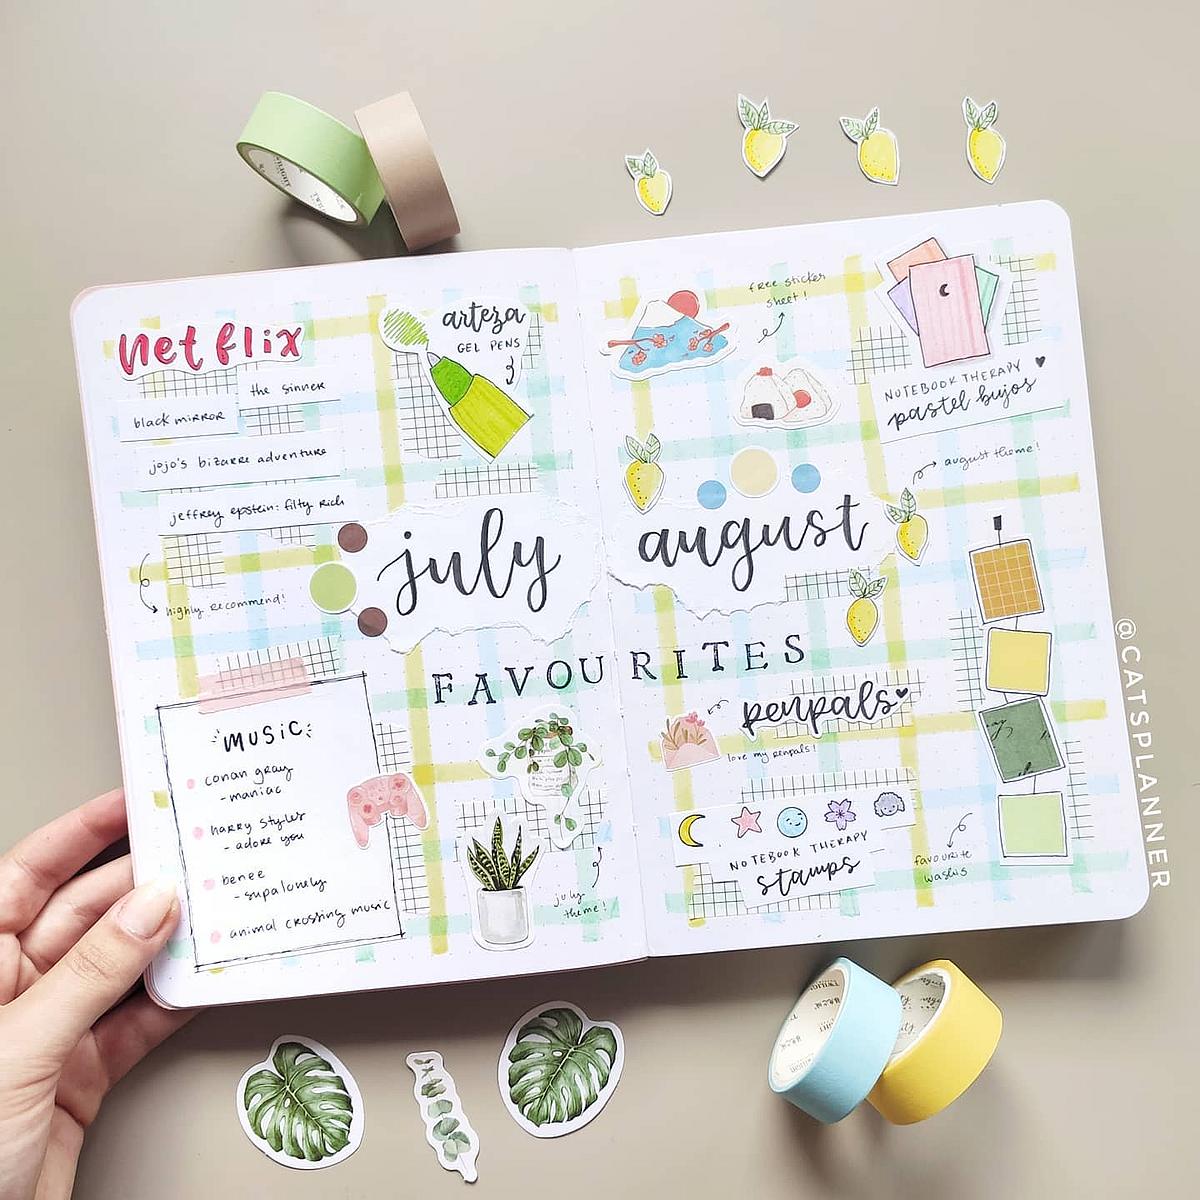 netflix
the sinner
black mirror
jojo's bizarre adventure
jeffrey epstein: filty rich
highly recommend!
arteza
GEL PENS
july
august
FAVOURITES
MUSIC
conan gray
- maniac
harry styles
- adore you
benee
- supalonely
animal crossing music
july
theme!
free sticker
sheet!
NOTEBOOK THERAPY
pastel bujos
august theme!
penpals
love my penpals!
NOTEBOOK THERAPY
stamps
favourite
washis
@CATSPLANNER